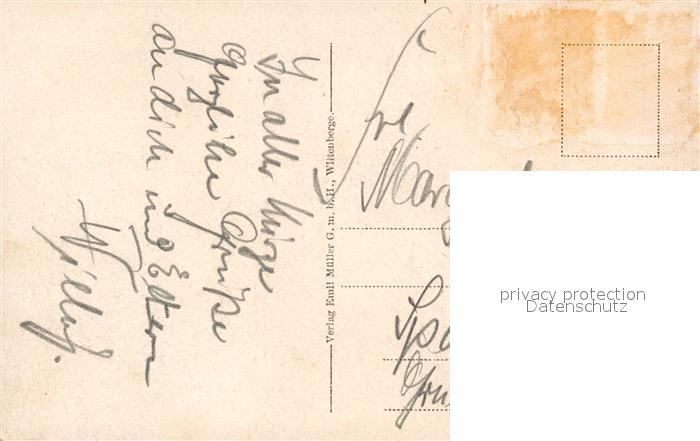 In aller Kürze
herzliche Grüße
an dich und Eltern
Willy.
Verlag Emil Müller G. m. b. H., Wittenberge.
Frl
privacy protection
Datenschutz